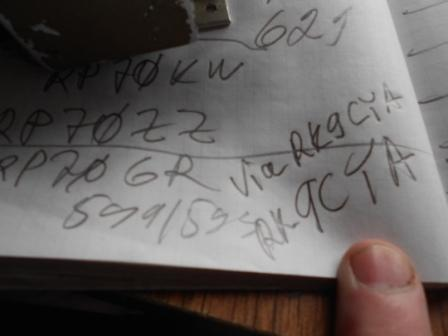 625
RP70KW
RP70ZZ
RP70GR via RK9CYA
599/599 RK9CYA